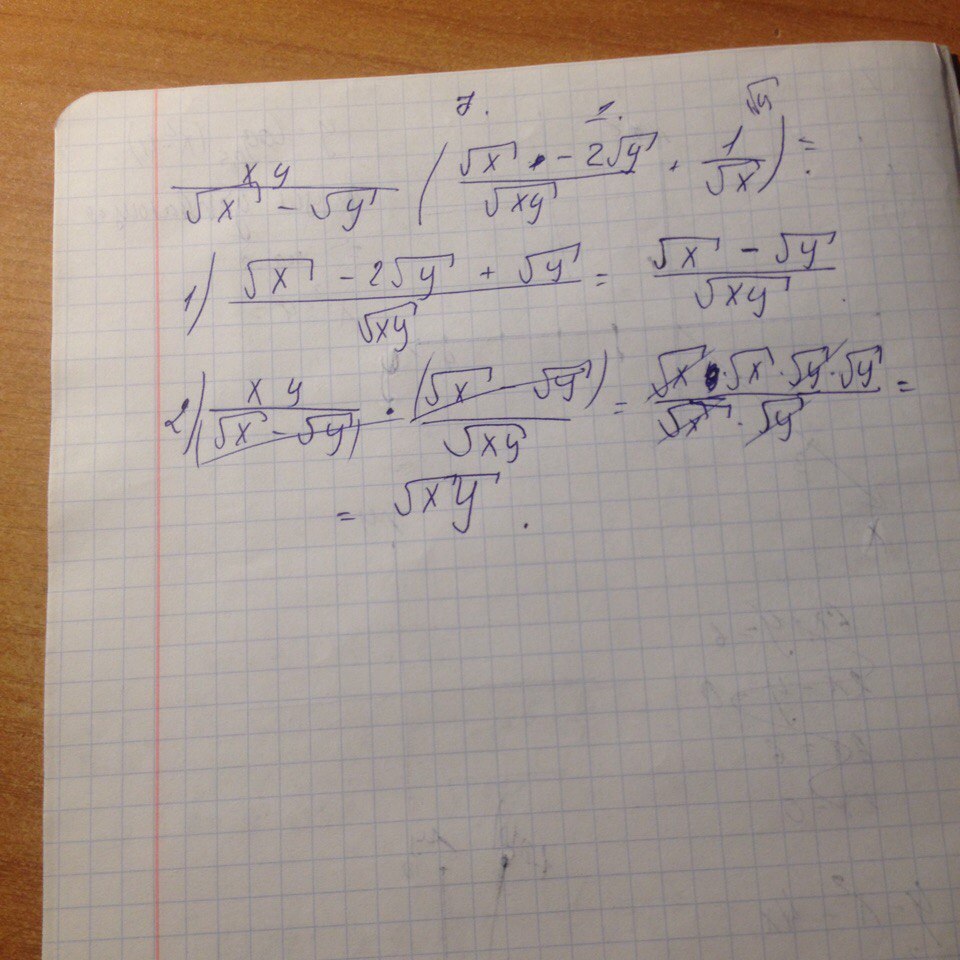 2. 1. √y
xy / (√x - √y) (√x - 2√y / √xy + 1/√x) =
1) (√x - 2√y + √y) / √xy = (√x - √y) / √xy
2) xy / (√x - √y) · (√x - √y) / √xy = √x · √x · √y · √y / √x · √y =
= √xy.